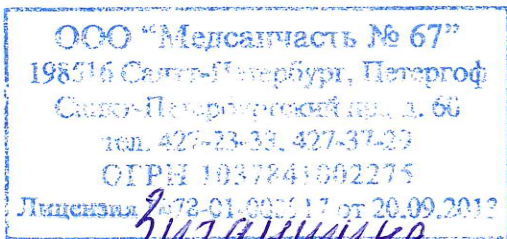 ООО “Медсанчасть № 67”
198516 Санкт-Петербург, Петергоф
Санкт-Петербургский пр., д. 60
тел. 427-23-33, 427-37-29
ОГРН 1037841002275
Лицензия 78-01- от 20.09.2013